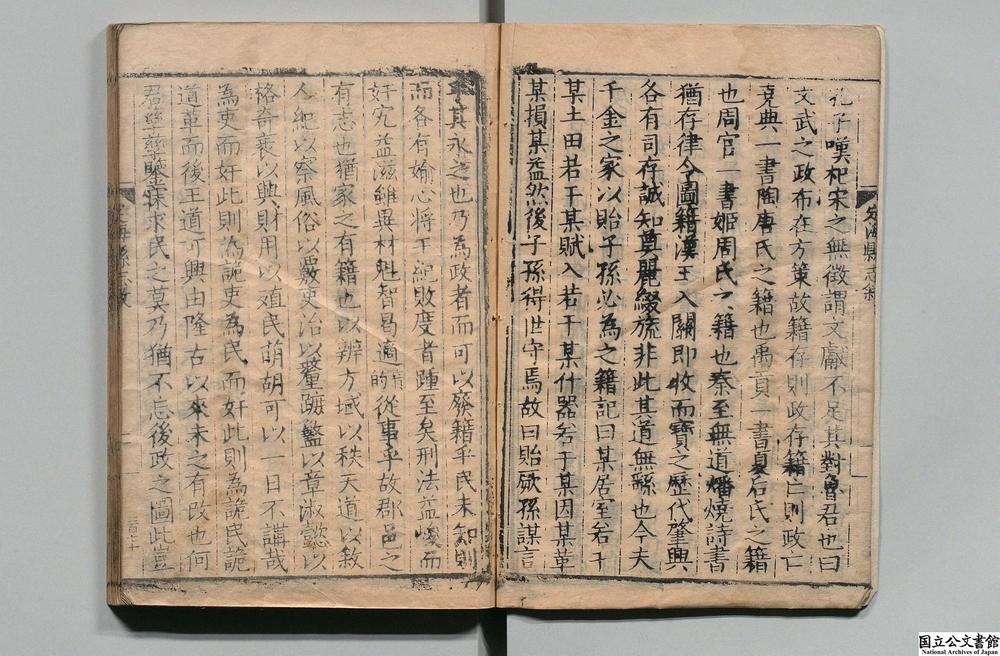 孔子嘆杞宋之無徵謂文獻不足其對魯君也曰
文武之政布在方策故籍存則政存籍亡則政亡
堯典一書陶唐氏之籍也禹貢一書夏后氏之籍
也周官一書姬周氏之籍也秦至無道燔燒詩書
猶存律令圖籍漢王入關即收而寶之歷代肇興
各有司存誠知奠麗綴旒非此其道無繇也今夫
千金之家以貽子孫必為之籍記曰某居室若干
某土田若干某賦入若干某什器若干某因某革
某損某益然後子孫得世守焉故曰貽厥孫謀言
其永之也乃為政者而可以廢籍乎民未知則
而各有媮心將干紀敗度者踵至矣刑法益峻而
奸宄益滋雖異材魁智曷適從事乎故郡邑之
有志也猶家之有籍也以辨方域以秩天道以敘
人紀以察風俗以嚴吏治以釐蹦盭以章淑慝以
格奇袤以興財用以殖民萌胡可以一日不講哉
為吏而好此則為詭吏為民而奸此則為詭民詭
道革而後王道可興由隆古以來未之有改也何
君孳孳鑒保求民之莫乃猶不忘後政之圖此豈
定海縣志敘
國立公文書館
National Archives of Japan